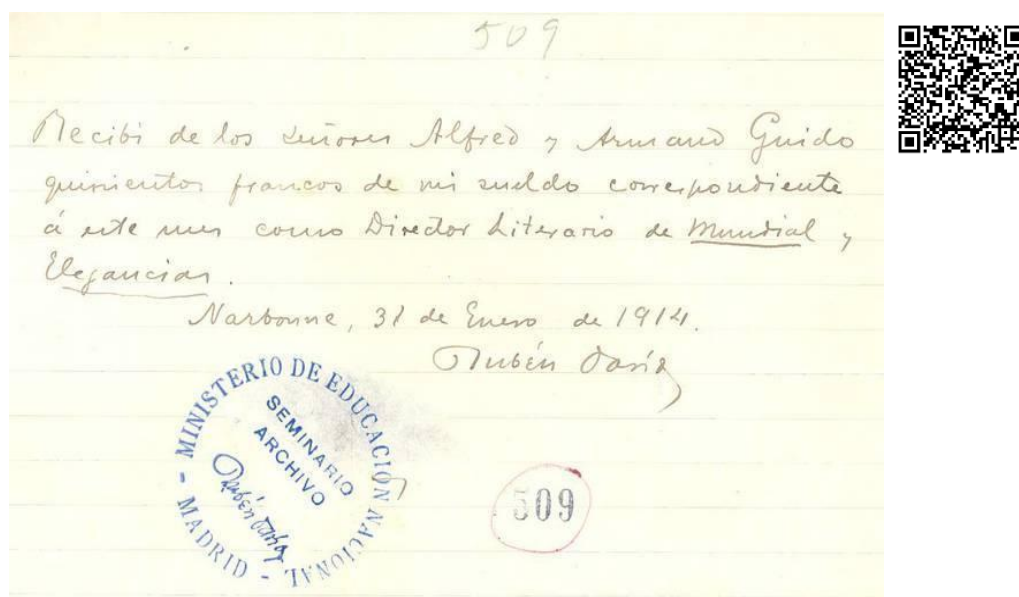 509
Recibi de los señores Alfred y Armand Guido
quinientos francos de mi sueldo correspondiente
á este mes como Director Literario de Mundial y
Elegancias.
Narbonne, 31 de Enero de 1914.
Rubén Darío
MINISTERIO DE EDUCACIÓN NACIONAL
- MADRID -
SEMINARIO
ARCHIVO
Rubén Darío
509